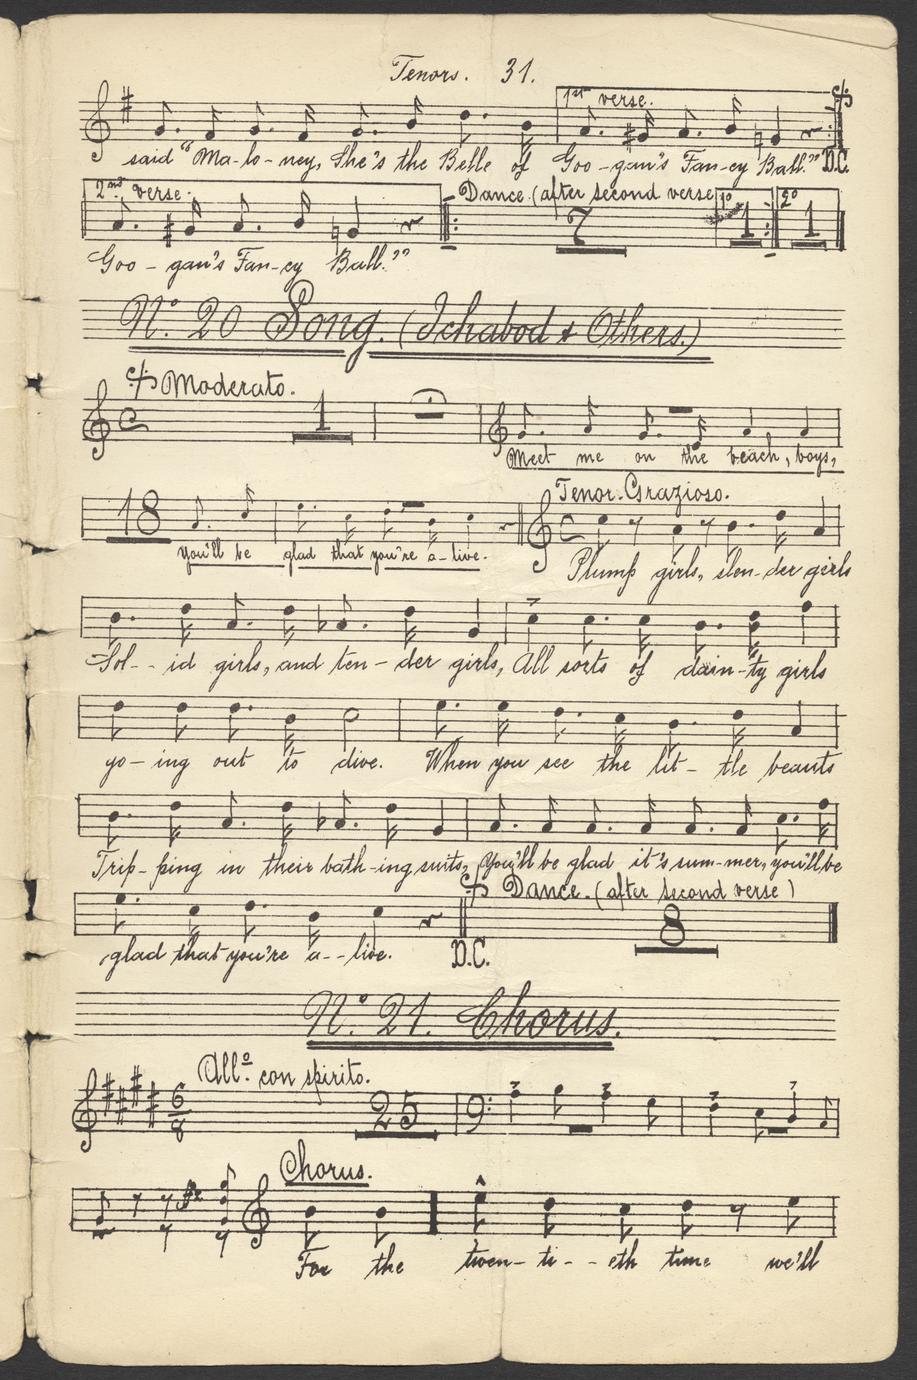 Tenors. 31.
1st verse.
said "Ma-lo-ney, She's the Belle of Goo-gan's Fan-cy Ball." D.C.
2nd verse. Dance (after second verse 1º 2º
7 1 1
Goo-gan's Fan-cy Ball."
Nº 20 Song. (Ichabod & Others.)
Moderato.
1
Meet me on the beach, boys,
18 Tenor. Grazioso.
you'll be glad that you're a-live.
Plump girls, slen-der girls
Sol--id girls, and ten-der girls, All sorts of dain-ty girls
go-ing out to dive. When you see the lit-tle beauts
Trip-ping in their bath-ing suits, You'll be glad it's sum-mer, you'll be
Dance. (after second verse)
8
glad that you're a--live. D.C.
Nº 21. Chorus.
Allº con spirito.
6/8 25
Chorus.
For the twen-ti--eth time we'll